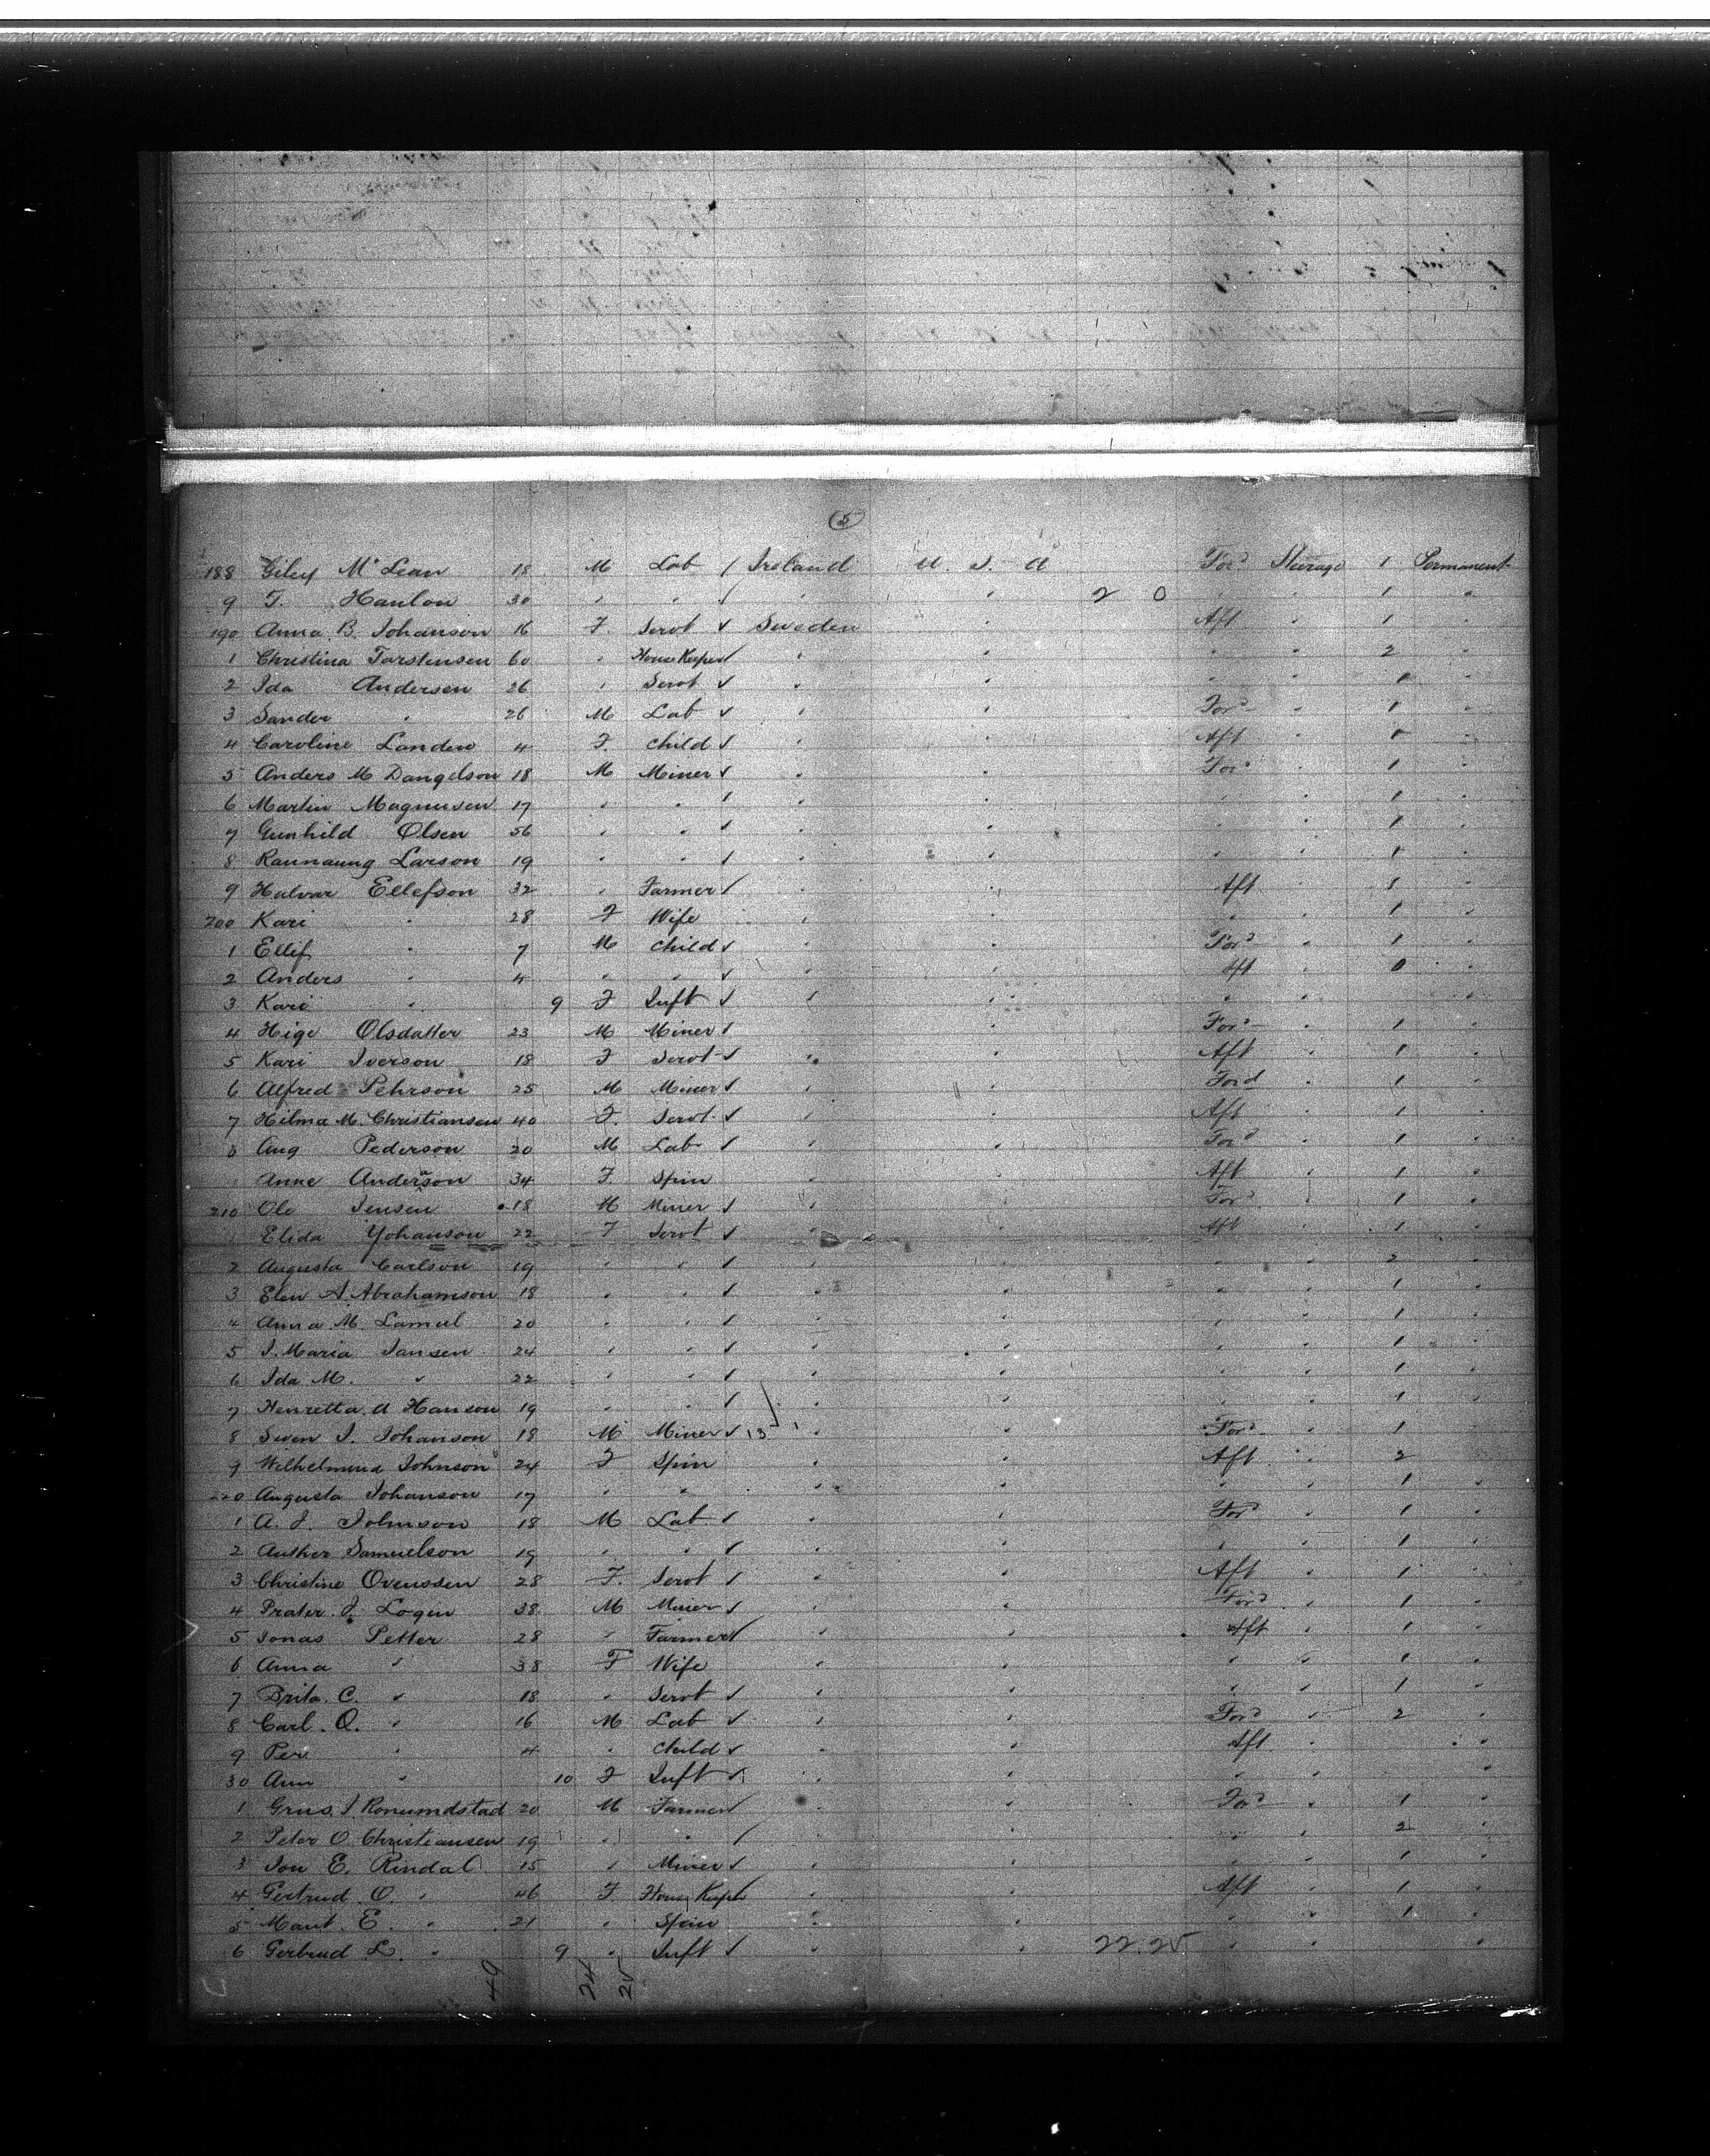 5
188 Giley McLean 18 M Lab / Ireland U. S. A For^d Steerage 1 Permanent
9 T. Hanlon 30 " " / " " 2 0 " " 1 "
190 Anna B. Johanson 16 F. Servt ✓ Sweden " Aft " 1 "
1 Christina Tarstensen 60 " House Keeper ✓ " " " " 2 "
2 Ida Andersen 26 " Servt ✓ " " " " 1 "
3 Sander " 26 M Lab ✓ " " For^d " 1 "
4 Caroline Landen 4 F. Child ✓ " " Aft " "
5 Anders M Dangelson 18 M Miner ✓ " " For^d " 1 "
6 Martin Magnusen 17 " " / " " " " 1 "
7 Gunhild Olsen 56 " " ✓ " " " " 1 "
8 Raunaung Larson 19 " " / " " " " 1 "
9 Halvar Ellefson 32 " Farmer / " " Aft " 1 "
200 Kari " 28 F Wife " " " " 1 "
1 Ellef " 7 M Child ✓ " " For^d " 1 "
2 Anders " 4 " " ✓ " " Aft " 0 "
3 Kari " 9 F Inft ✓ " " " "
4 Hige Olsdatter 23 M Miner ✓ " " For^d " 1 "
5 Kari Iverson 18 F Servt ✓ " " Aft " 1 "
6 Alfred Pehrson 25 M Miner ✓ " " Ford " 1 "
7 Hilma M. Christiansen 40 F. Servt ✓ " " Aft " 1 "
8 Aug Pederson 20 M Lab ✓ " " For^d " 1 "
Anne Anderson 34 F Spin " " Aft " 1 "
210 Ole Jensen 18 M Miner ✓ " " For^d " 1 "
Elida Yohanson 22 F Servt ✓ " " Aft " 1 "
2 Augusta Carlson 19 " " / " " " " 2 "
3 Elen A. Abrahamson 18 " " / " " " " 1 "
4 Anna M. Lamuel 20 " " / " " " " 1 "
5 J. Maria Jansen 24 " " / " " " " 1 "
6 Ida M. " 22 " " / " " " " 1 "
7 Henretta A Hanson 19 " " / " " " " 1 "
8 Swen J. Johanson 18 M Miner ✓ 13 " " For^d " 1
9 Wilhelmina Johnson 24 F Spin " " Aft " 2
220 Augusta Johanson 17 " " " " " " 1 "
1 A. J. Johnson 18 M Lab. ✓ " " For^d " 1 "
2 Anther Samuelson 19 " " ✓ " " " " 1 "
3 Christine Ovenssen 28 F. Servt / " " Aft " 1 "
4 Prater J. Login 38 M Miner ✓ " " For^d " 1 "
5 Jonas Petter 28 " Farmer ✓ " " Aft " 1 "
6 Anna " 38 F Wife " " " " 1 "
7 Brita C. " 18 " Servt ✓ " " " " 1 "
8 Carl. O. " 16 M Lab ✓ " " For^d " 2 "
9 Per " 4 " Child ✓ " " Aft " "
30 Ann " 10 F Inft ✓ " " " " "
1 Grus J. Ronumdstad 20 M Farmer ✓ " " For^d " 1 "
2 Peter O. Christiansen 19 " " / " " " " 2 "
3 Jon E. Rindal 15 " Miner ✓ " " " " 1 "
4 Gertrud O. " 46 F. House Keeper " " Aft " 1 "
5 Marit E. " 21 " Spin " " " " 1 "
6 Gertrud L. " 9 " Inft ✓ " " 22.25 " " "
49 24 25